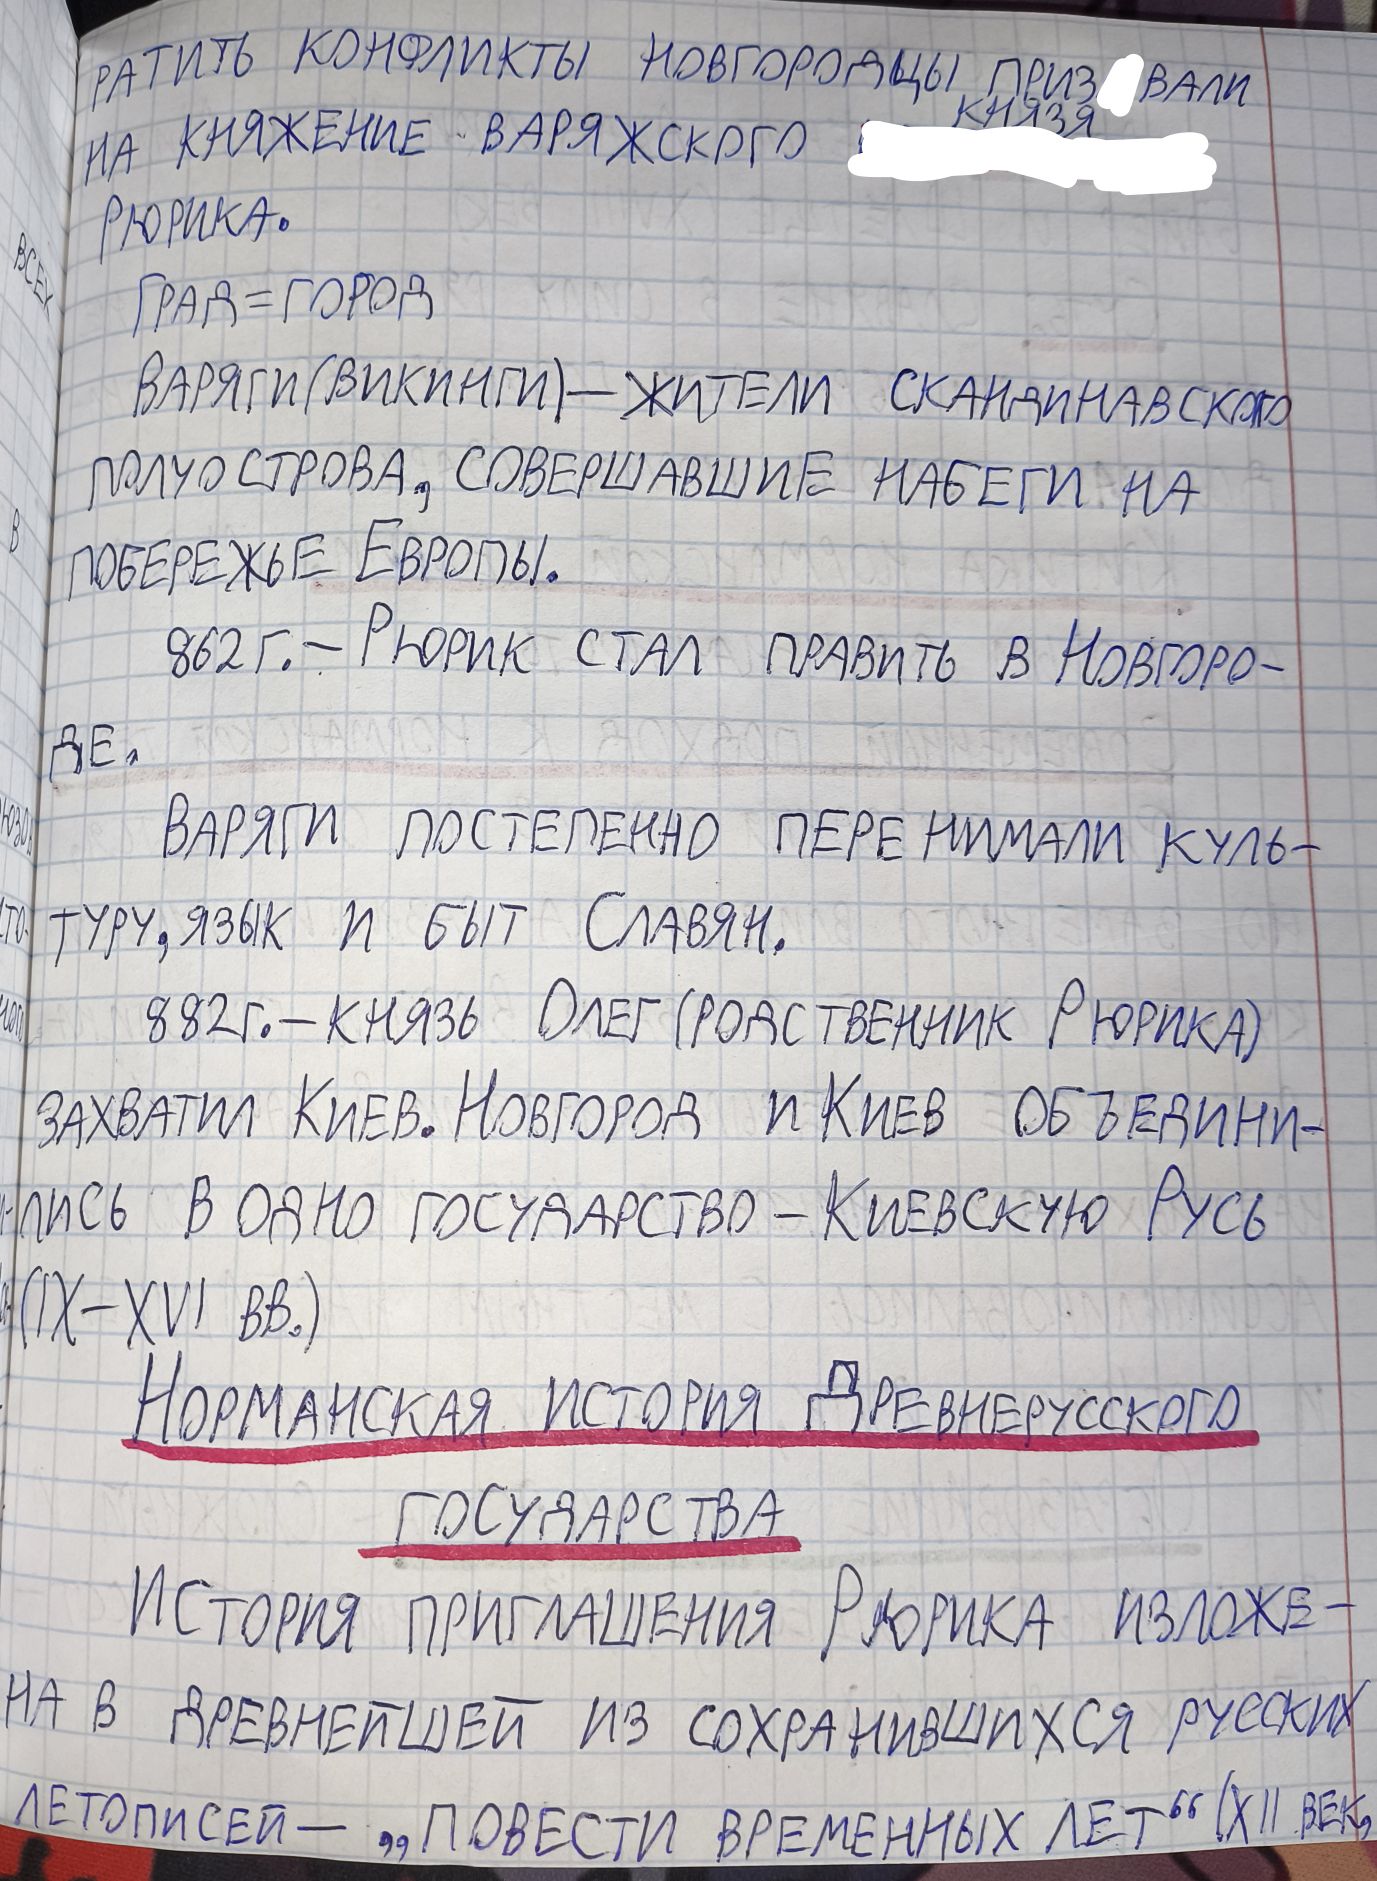 РАТИТЬ КОНФЛИКТЫ НОВГОРОДЦЫ ПРИЗ ВАЛИ
НА КНЯЖЕНИЕ ВАРЯЖСКОГО КНЯЗЯ
РЮРИКА.
ГРАД=ГОРОД
ВАРЯГИ(ВИКИНГИ)—ЖИТЕЛИ СКАНДИНАВСКОГО
ПОЛУОСТРОВА, СОВЕРШАВШИЕ НАБЕГИ НА
ПОБЕРЕЖЬЕ ЕВРОПЫ.
862г.—РЮРИК СТАЛ ПРАВИТЬ В НОВГОРО-
ДЕ.
ВАРЯГИ ПОСТЕПЕННО ПЕРЕНИМАЛИ КУЛЬ-
ТУРУ, ЯЗЫК И БЫТ СЛАВЯН.
882г.—КНЯЗЬ ОЛЕГ(РОДСТВЕННИК РЮРИКА)
ЗАХВАТИЛ КИЕВ. НОВГОРОД И КИЕВ ОБЪЕДИНИ-
ЛИСЬ В ОДНО ГОСУДАРСТВО—КИЕВСКУЮ РУСЬ
(IX—XVI ВВ.)
НОРМАНСКАЯ ИСТОРИЯ ДРЕВНЕРУССКОГО
ГОСУДАРСТВА
ИСТОРИЯ ПРИГЛАШЕНИЯ РЮРИКА ИЗЛОЖЕ-
НА В ДРЕВНЕЙШЕЙ ИЗ СОХРАНИВШИХСЯ РУССКИХ
ЛЕТОПИСЕЙ— „ПОВЕСТИ ВРЕМЕННЫХ ЛЕТ“ (XII ВЕК,
ВСЕХ
В